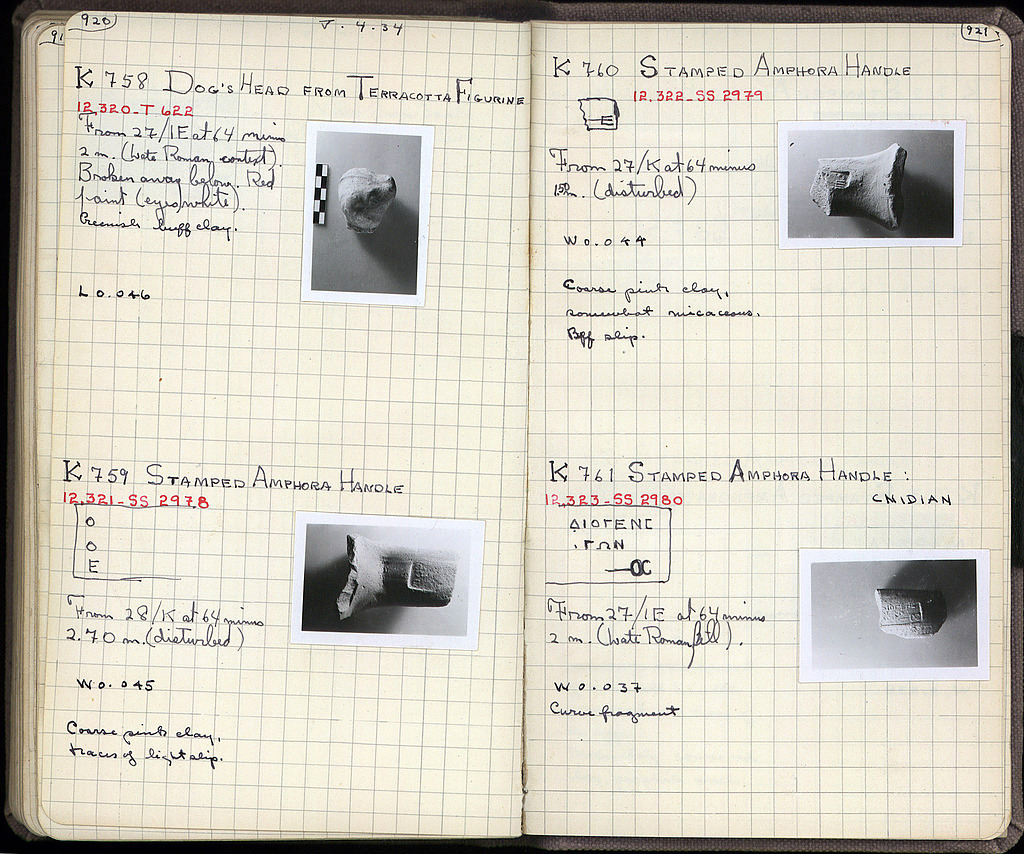 920
V. 4.34
K 758 DOG'S HEAD FROM TERRACOTTA FIGURINE
12,320-T 622
From 27/ΙΕ at 64 minus
2 m. (Late Roman context).
Broken away below. Red
paint (eyes white).
Greenish buff clay.
L 0.046
K 759 STAMPED AMPHORA HANDLE
12,321-SS 2978
O
O
E
From 28/K at 64 minus
2.70 m. (disturbed)
W 0.045
Coarse pink clay,
traces of light slip.
921
K 760 STAMPED AMPHORA HANDLE
12,322-SS 2979
From 27/K at 64 minus
m. (disturbed)
W 0.044
Coarse pink clay,
somewhat micaceous.
Bff slip.
K 761 STAMPED AMPHORA HANDLE :
12,323-SS 2980
CNIDIAN
ΔΙΟΓΕΝΕ
.ΓΩΝ
From 27/ΙΕ at 64 minus
2 m. (Late Roman fill).
W 0.037
Curve fragment